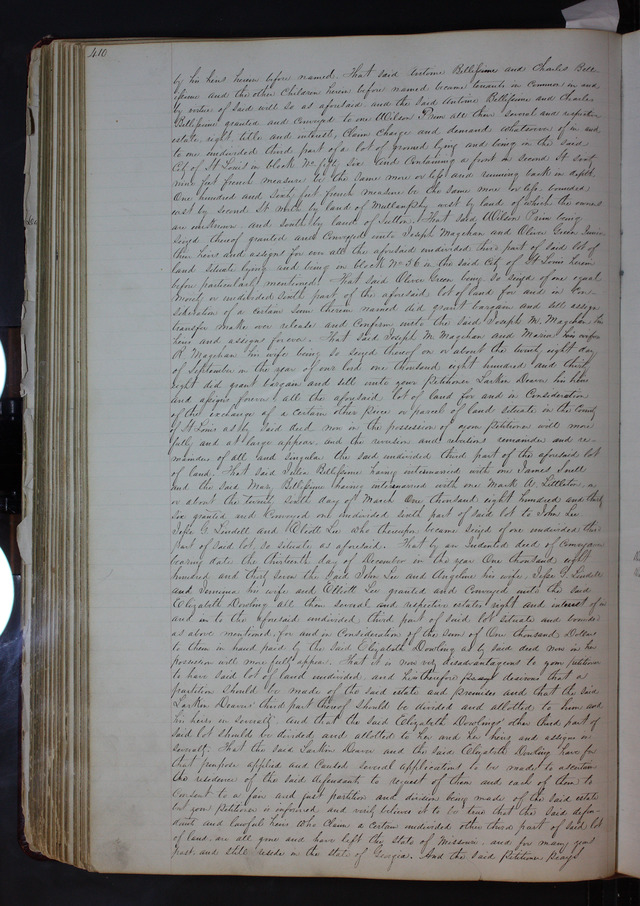 410
by his heirs herein before named. That said Antoine Bellissime and Charles Bell
issime and the other Children herein before named became tenants in common in and
by virtue of said will so as aforesaid and the said Antoine Bellissime and Charles
Bellissime granted and Conveyed to one Wilson Prim all their several and respective
estate, right, title and interest, Claim Charge and demand whatsoever of in and
to one undivided third part of a lot of ground lying and being in the said
City of St Louis in block No fifty six and Containing a front on Second St Sixty
nine feet french measure be the same more or less and running back in depth
One hundred and Sixty feet french measure be the same more or less bounded
east by Second St north by land of Mullanphy west by land of which the owners
are unknown and South by land of Sutton. That said Wilson Prim being
seized thereof granted and Conveyed unto Joseph Magehan and Oliver Green
their heirs and assigns forever all the aforesaid undivided third part of said lot of
land situate lying and being in block No 56 in the said City of St Louis herein
before particularly mentioned. That said Oliver Green being so seized of one equal
moiety or undivided sixth part of the aforesaid lot of land for and in Con
sideration of a certain sum therein named did grant bargain and sell assign
transfer make over release and Confirm unto the said Joseph M. Magehan his
heirs and assigns forever. That said Joseph M. Magehan and Maria
R. Magehan his wife being so seized thereof on or about the twenty eight day
of September in the year of our Lord one thousand eight hundred and thirty
eight did grant bargain and sell unto your Petitioner Larkin Deaver his heirs
and assigns forever all the aforesaid lot of land for and in Consideration
of the exchange of a certain other piece or parcel of land situate in the County
of St Louis as by said deed now in the possession of your Petitioner will more
fully and at large appear, and the reversion and reversions remainder and re-
mainders of all and singular the said undivided third part of the aforesaid lot
of land. That said Bellissime having intermarried with one James Snell
and the said Mary Bellissime having intermarried with one Mark A. Littleton, on
or about the twenty sixth day of March One thousand eight hundred and thirty
six granted and Conveyed one undivided sixth part of said lot to John Lee
Jesse G. Lindell and Elliott Lee who thereupon became seized of one undivided third
part of said lot, so situate as aforesaid. That by an Indented deed of Conveyance
bearing date the thirteenth day of December in the year One thousand eight
hundred and thirty seven the said John Lee and Angeline his wife, Jesse G. Lindell
and Jemima his wife and Elliott Lee granted and Conveyed unto the said
Elizabeth Dowling all their several and respective estate right and interest of in
and in to the aforesaid undivided third part of said lot situate and bounded
as above mentioned for and in Consideration of the sum of One thousand Dollars
to them in hand paid by the said Elizabeth Dowling as by said deed now in her
possession will more fully appear. That it is now very disadvantageous to your petitioner
to have said lot of land undivided, and he therefore prays desirous that a
partition should be made of the said estate and premises and that the said
Larkin Deavers third part thereof should be divided and allotted to him and
his heirs in severalty. And that the said Elizabeth Dowlings other third part of
said lot should be divided and allotted to her and her heirs and assigns in
severalty. That the said Larkin Deaver and the said Elizabeth Dowling have for
that purpose applied and Caused several applications to be made to ascertain
the residence of the said defendants to request of them and each of them to
Consent to a fair and just partition and division being made of the said estate
but your Petitioner is informed and verily believes it to be true that the said defen-
dants and lawful heirs who Claim a certain undivided other third part of said lot
of land, are all gone and have left the State of Missouri, and for many years
past and still reside in the State of Georgia. And the said Petitioner prays